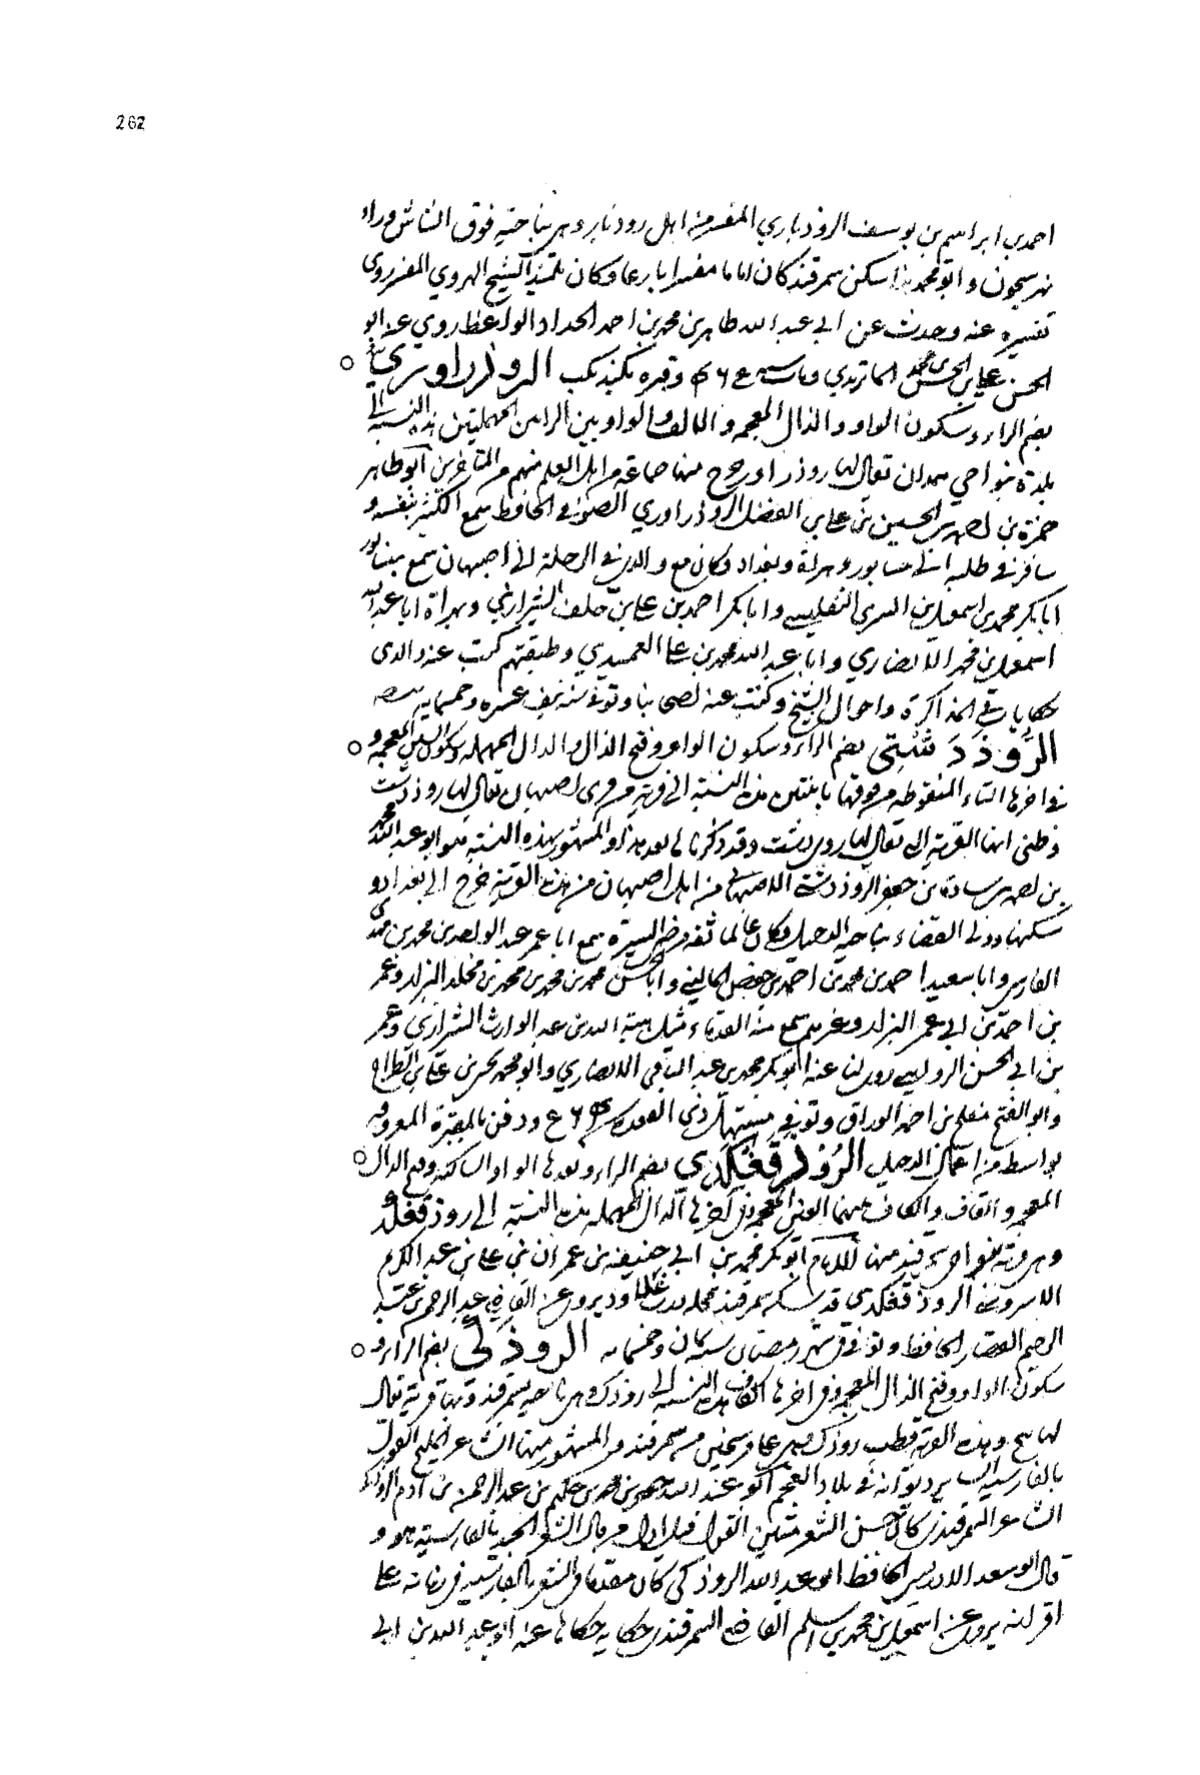 262
احمد بن ابراهيم بن يوسف الروذباري المفسر من اهل روذبار وهي بناحية فوق الشاش وراء
نهر سيحون وابو محمد هذا سكن سمرقند كان اماما مفسرا بارعا وكان تلميذ الشيخ الهروي المفسر روى
تفسيره عنه وحدث عن ابي عبد الله طاهر بن محمد بن احمد الحداد الواعظ روي عنه ابو
الحسن علي بن الحسن بن محمد الماتريدي ومات سنة وقبره الروذراوري
بضم الراء وسكون الواو والذال المعجمة والالف والواو بين الرائين المهملتين هذه النسبة الى
بلدة بنواحي همدان يقال لها روذراور خرج منها جماعة من اهل العلم منهم من المتاخرين ابو طاهر
حمزة بن الحسين بن علي بن الفضل الروذراوري الصوفي الحافظ سمع الكثير بنفسه و
سافر في طلبه الى نيسابور وهراة وبغداد وكان مع والدي في الرحلة الى اصبهان سمع بنيسابور
ابا بكر محمد بن اسمعيل بن السري التفليسي وابا بكر احمد بن علي بن خلف الشيرازي وبهراة ابا عبد الله
اسمعيل بن محمد الانصاري وابا عبد الله محمد بن علي العميري وطبقتهم كتب عنه والدي
حكايات في المذاكرة واحوال الشيخ وكتب عنه اصحابنا وتوفي سنة نيف عشره وخمسمايه
الروذدشتي بضم الراء وسكون الواو وفتح الذال والدال المهملة وسكون الشين المعجمة و
في اخرها التاء المنقوطة من فوقها باثنتين هذه النسبة الى قرية من قرى اصبهان يقال لها روذدشت
وظني انها القرية التي يقال لها رويدشت وقد ذكرتها بعد هذا والمشهور بهذه النسبة هو ابو عبد الله محمد
بن جعفر الروذدشتي الاصبهاني من اهل اصبهان من هذه القرية خرج الى بغداد و
سكنها وولي القضاء بناحية الدجيل وكان عالما ثقة مرضي السيرة سمع ابا عمر عبد الواحد بن محمد بن مهدي
الفارسي وابا سعيد احمد بن محمد بن احمد بن حفص الماليني وابا الحسن محمد بن محمد بن محمد بن مخلد البزاز وعمر
بن احمد بن ابي عمر البزاز وغيرهم سمع منه القدماء مثل هبة الله بن عبد الوارث الشيرازي وعمر
بن ابي الحسن الرواسي روى لنا عنه ابو بكر محمد بن عبد الباقي الانصاري وابو محمد يحيى بن علي بن الطراح
وابو الفتح مفلح بن احمد الوراق وتوفي في مستهل ذي القعدة سنة ودفن بالمقبرة المعروفة
بواسط من اعمال الدجيل الروذفغكدي بضم الراء وبعدها الواو الساكنة وفتح الذال
المعجمة والقاف والكاف بينهما الغين المعجمة وفي اخرها الدال المهملة هذه النسبة الى روذفغكد
وهي قرية بنواحي سمرقند منها الامام ابو بكر محمد بن ابي حنيفة بن عمران بن علي بن عبد الكريم
الاسروشني الروذفغكدي قد سكن سمرقند بمحلة ويروي عن القاضي عبد الرحمن بن عبد
الرحيم القصار الحافظ وتوفي في شهر رمضان سنة ثمان وخمسمايه الروذكي بضم الراء و
سكون الواو وفتح الذال المعجمة وفي اخرها الكاف هذه النسبة الى روذك وهي ناحية بسمرقند وبها قرية يقال
لها بنج وهذه القرية قطب روذك وهي على فرسخين من سمرقند والمشهور منها الشاعر المليح القول
بالفارسية السائر ديوانه في بلاد العجم ابو عبد الله جعفر بن محمد بن حكيم بن عبد الرحمن بن آدم الروذكي
الشاعر السمرقندي كان حسن الشعر متين القول قيل اول من قال الشعر الجيد بالفارسية هو و
قال ابو سعد الادريسي الحافظ ابو عبد الله الروذكي كان مقدما في الشعر بالفارسية في زمانه على
اقرانه يروي عن اسمعيل بن محمد بن اسلم القاضي السمرقندي حكاية حكاها عنه ابو عبد الله بن ابي